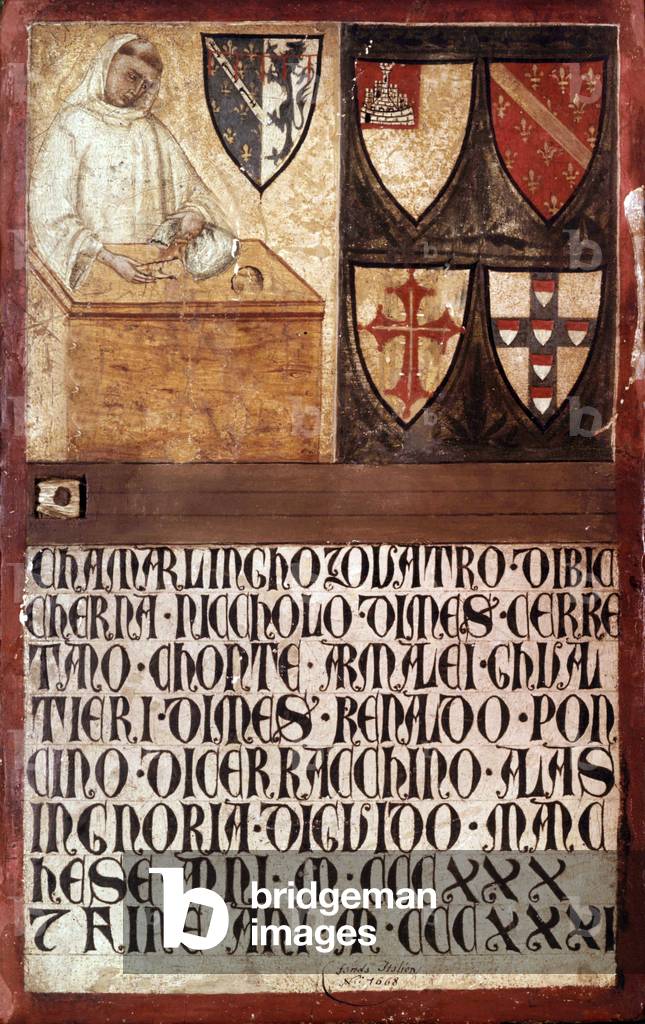 CHAMARLINGHO·QVATRO·DIBIC
CHERNA·NICCHOLO·DIMES·CERRE
TANO·CHONTE·ARMALEI·GHVAL
TIERI·DIMES·RENALDO·PON
CINO·DICERRACCHINO·ALAS
INGNORIA·DIGVIDO·MARC
HESE ANI·M·CCCXXX
ANI·M·CCCXXXI
fonds Italien
No. 1668
bridgeman
images